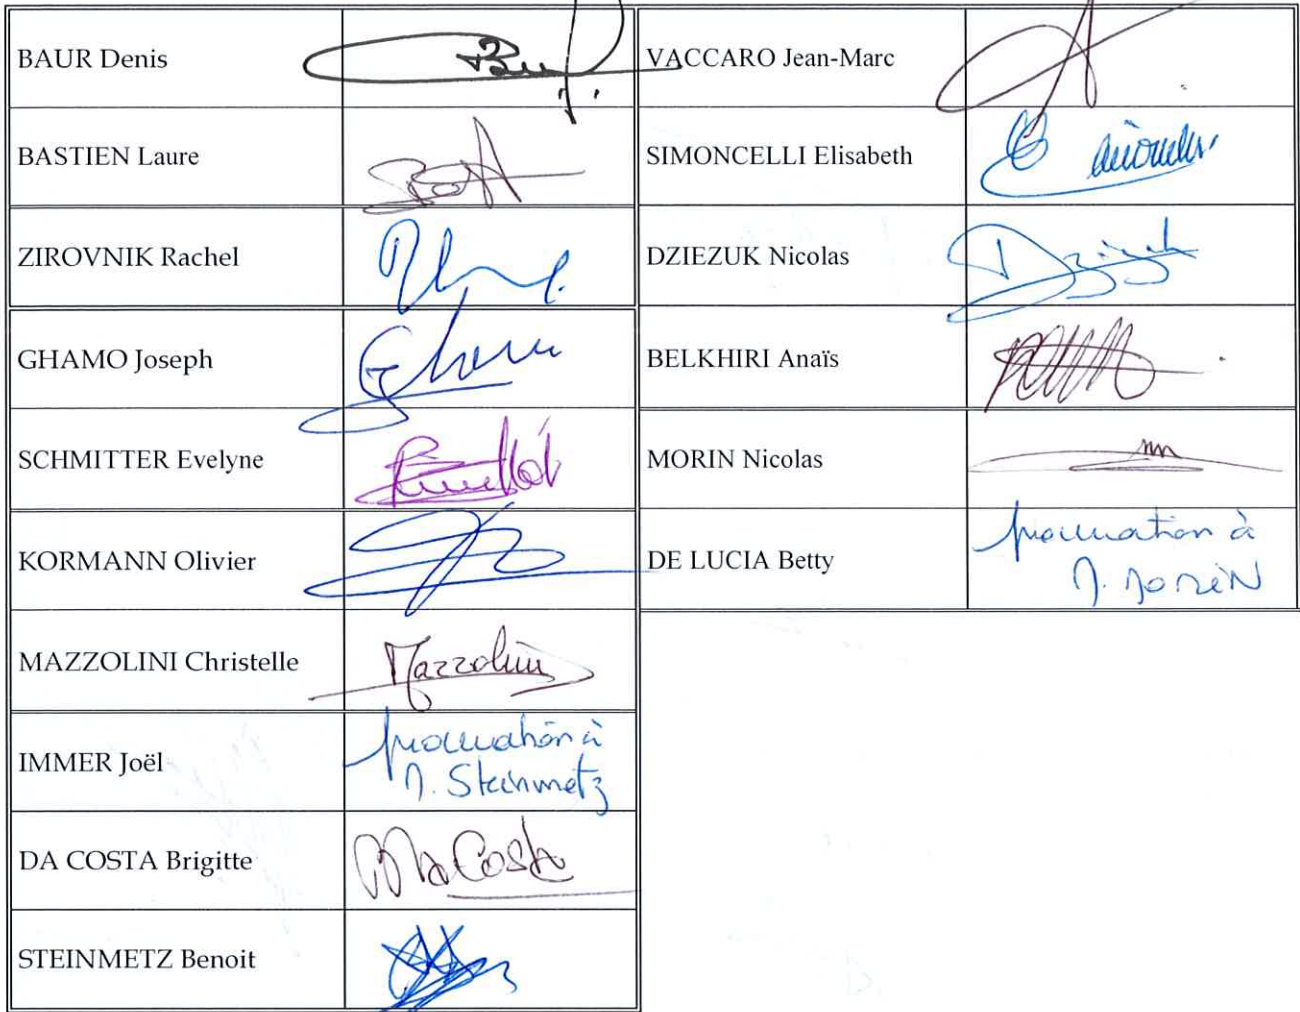 BAUR Denis
BASTIEN Laure
ZIROVNIK Rachel
GHAMO Joseph
SCHMITTER Evelyne
KORMANN Olivier
MAZZOLINI Christelle
Mazzolini
IMMER Joël
procuration à
M. Steinmetz
DA COSTA Brigitte
Da Costa
STEINMETZ Benoit
VACCARO Jean-Marc
SIMONCELLI Elisabeth
DZIEZUK Nicolas
BELKHIRI Anaïs
MORIN Nicolas
DE LUCIA Betty
procuration à
M. MORIN